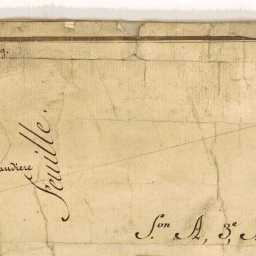 g.
audiere
feuille.
S.on A, 3e